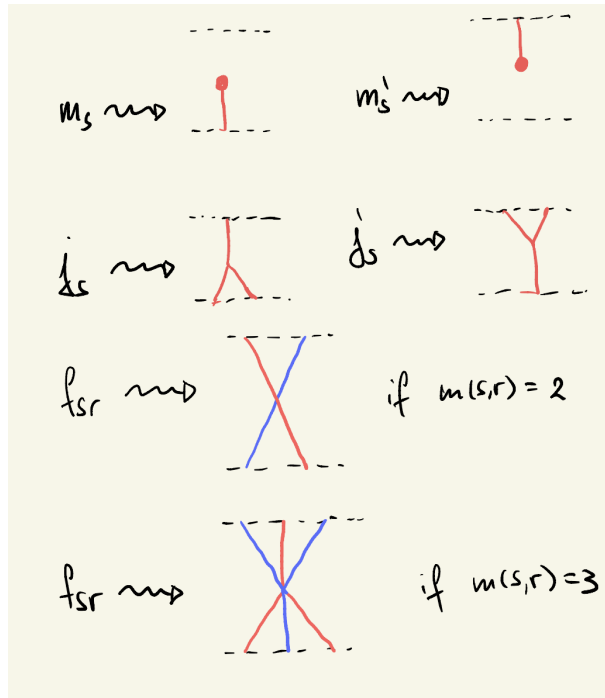 m_s ⇝ m_s' ⇝
j_s ⇝ j_s' ⇝
f_sr ⇝ if m(s,r) = 2
f_sr ⇝ if m(s,r) = 3